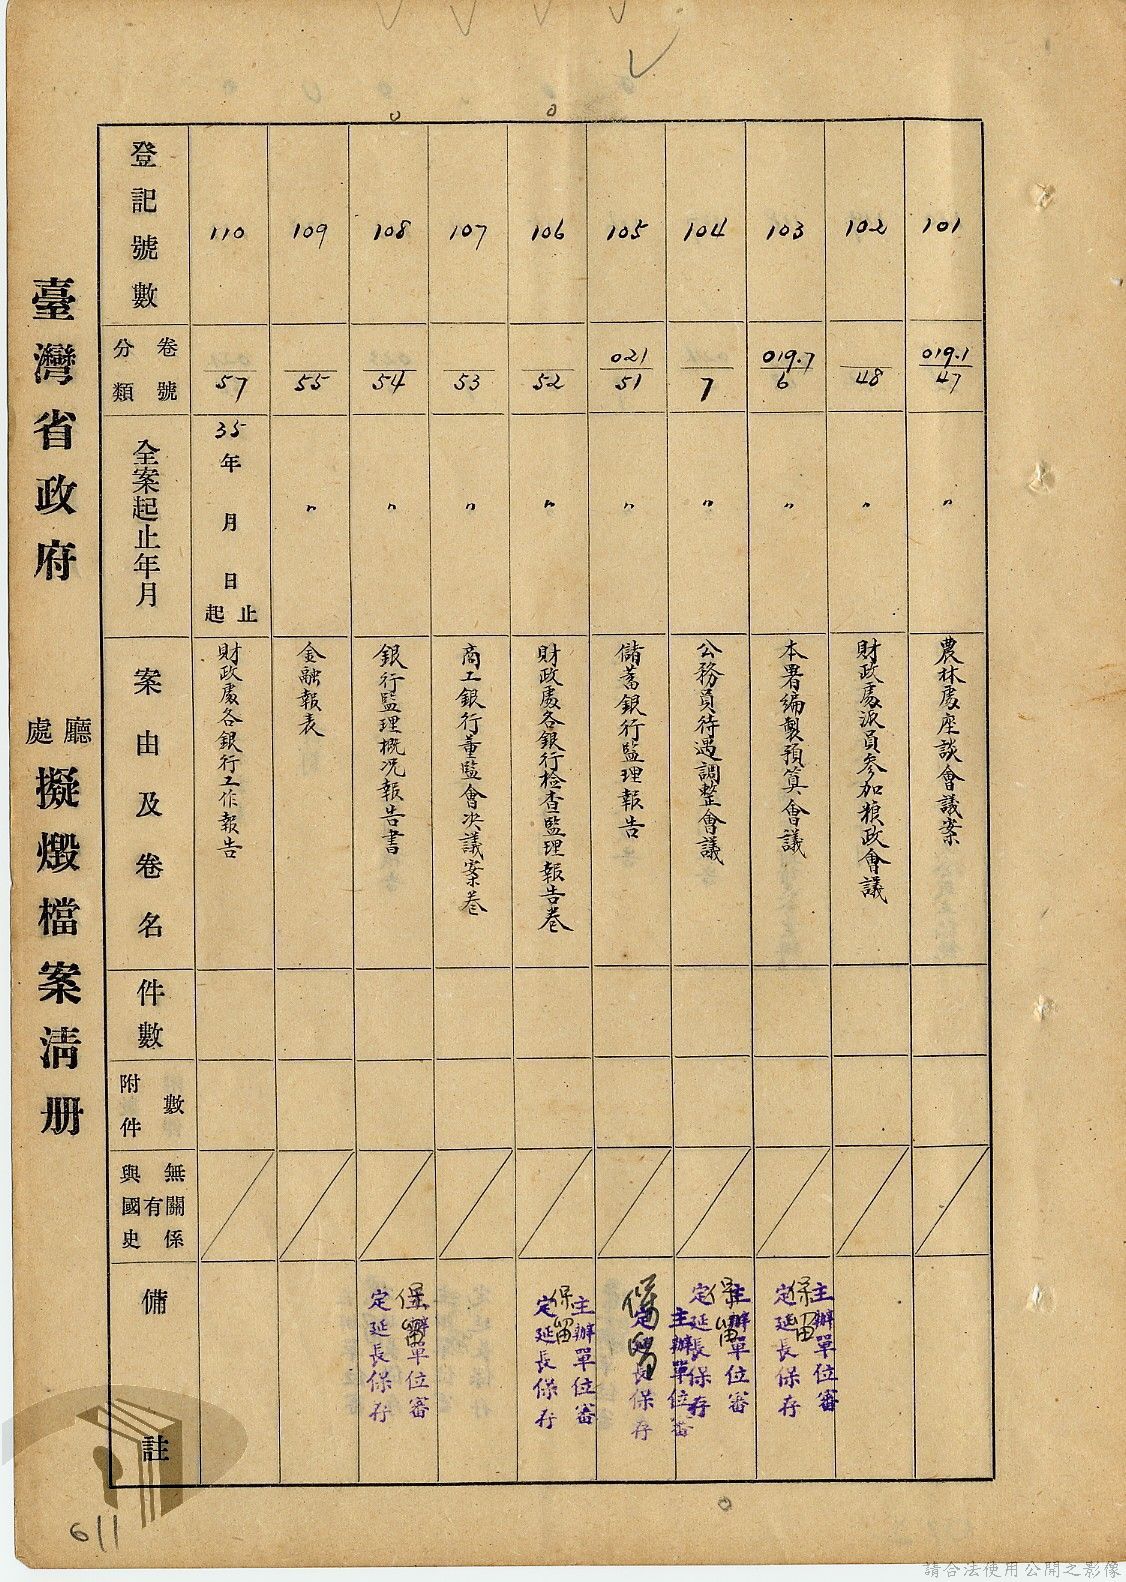 臺灣省政府 廳處 擬燬檔案清册
登記號數
101
102
103
104
105
106
107
108
109
110
卷號
分類
019.1
47
48
019.7
6
7
021
51
52
53
54
55
57
全案起止年月
〃
〃
〃
〃
〃
〃
〃
〃
〃
35年 月 日
起止
案由及卷名
農林處座談會議案
財政處派員參加粮政會議
本署編製預算會議
公務員待遇調整會議
儲蓄銀行監理報告
財政處各銀行檢查監理報告卷
商工銀行董監會決議案卷
銀行監理概況報告書
金融報表
財政處各銀行工作報告
件數
附件數
與國史有無關係
備註
主辦單位審
定延長保存
保留
主辦單位審
定延長保存
保留
主辦單位審
定延長保存
保留
主辦單位審
定延長保存
保留
主辦單位審
定延長保存
保留
611
請合法使用公開之影像